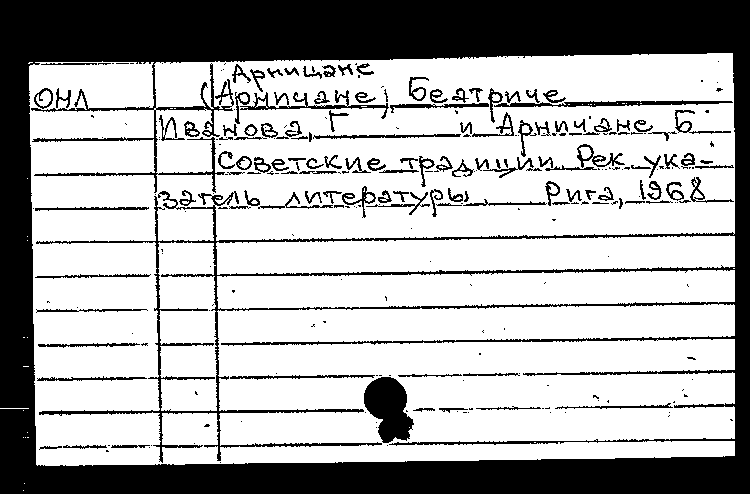 Арницане
ОНЛ (Арничане), Беатриче
Иванова, Г и Арничане, Б
Советские традиции. Рек. ука-
затель литературы. Рига, 1968